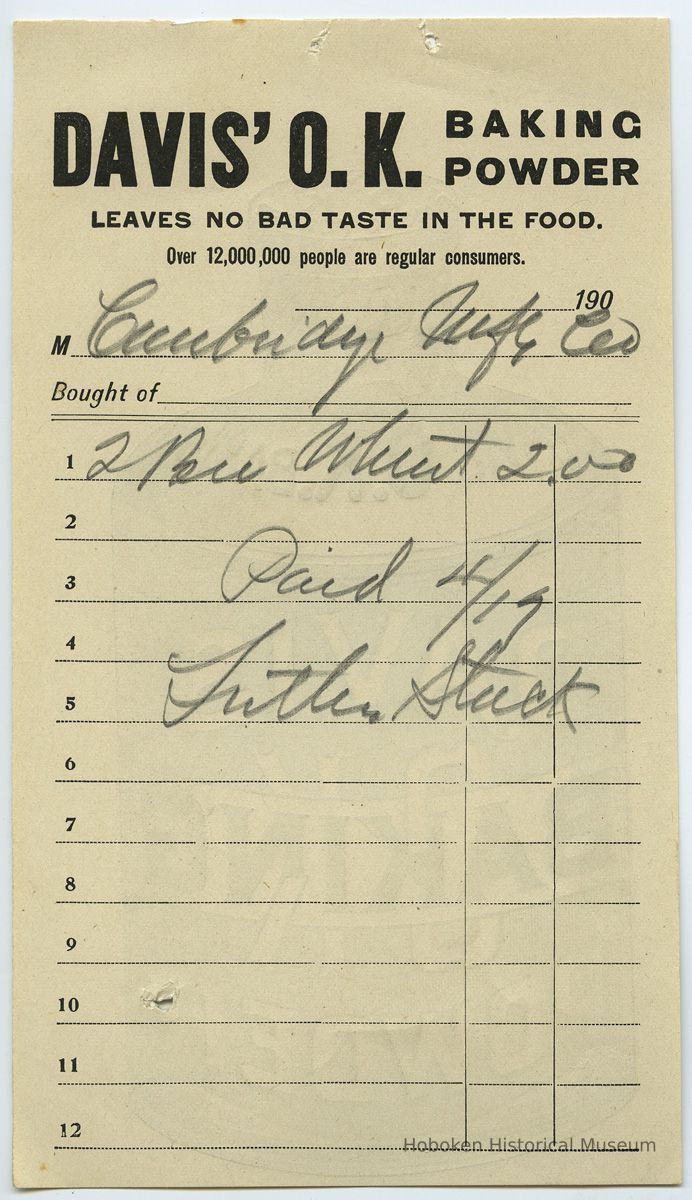 DAVIS' O. K. BAKING POWDER
LEAVES NO BAD TASTE IN THE FOOD.
Over 12,000,000 people are regular consumers.
190
M Cambridge Mfg Co
Bought of
1 2 Wheat 2.00
2
3 Paid 4/19
4
5 Stuck
6
7
8
9
10
11
12
Hoboken Historical Museum